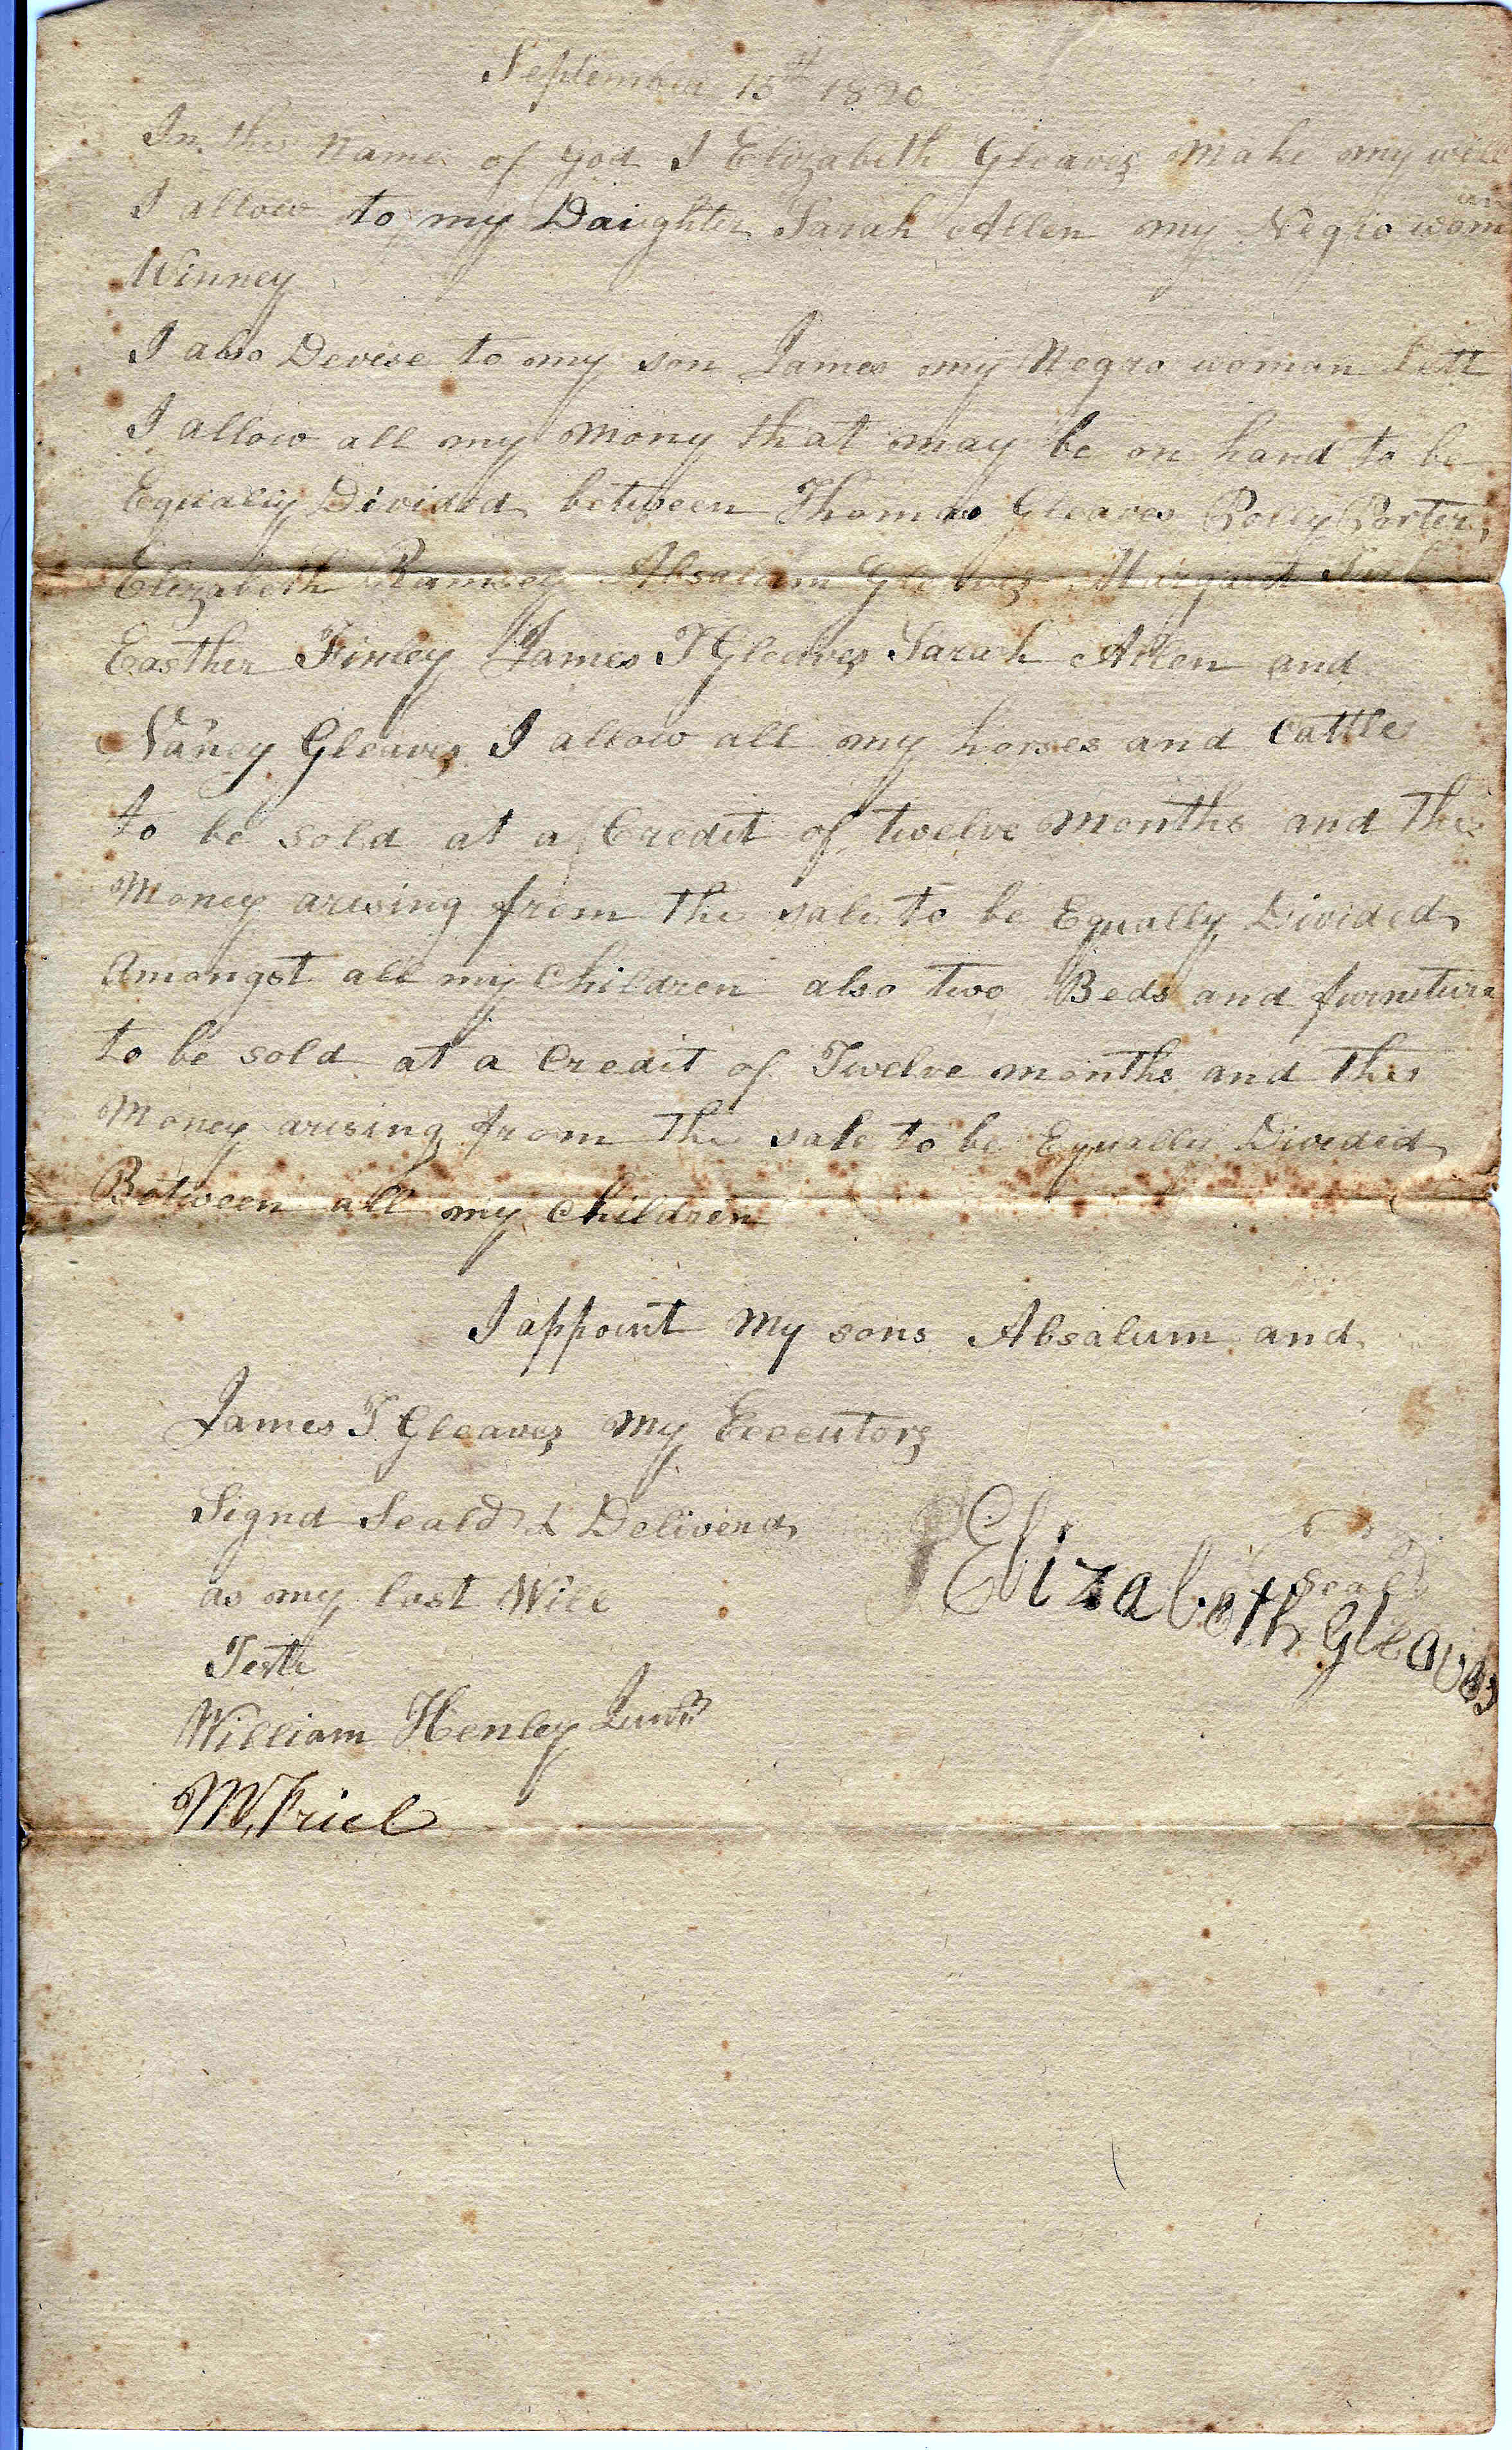 September 15th 1820
In the Name of god I Elizabeth Gleaves Make my will
I allow to my Daighter Sarah Allen my Negro woman
Winney
I also Devise to my son James my Negro woman Lett
I allow all my Mony that may be on hand to be
Equaly Divided between Thomas Gleaves Polly Porter,
Elizabeth Ramsey Absalum Gleaves Margaret
Easther Finley James T Gleaves Sarah Allen and
Nancy Gleaves I allow all my horses and Cattle
to be sold at a Credit of twelve Months and the
Money arising from the sale to be Equally Divided
Amongst all my Children also two Beds and furniture
to be sold at a Credit of Twelve months and the
Money arising from the sale to be Equally Divided
Between all my Children
I appoint My sons Absalum and
James T Gleaves My Executors
Signd Seald & Deliverd
as my last Will
Elizabeth Gleaves
Seal
Teste
William Henley Junr
M Friel